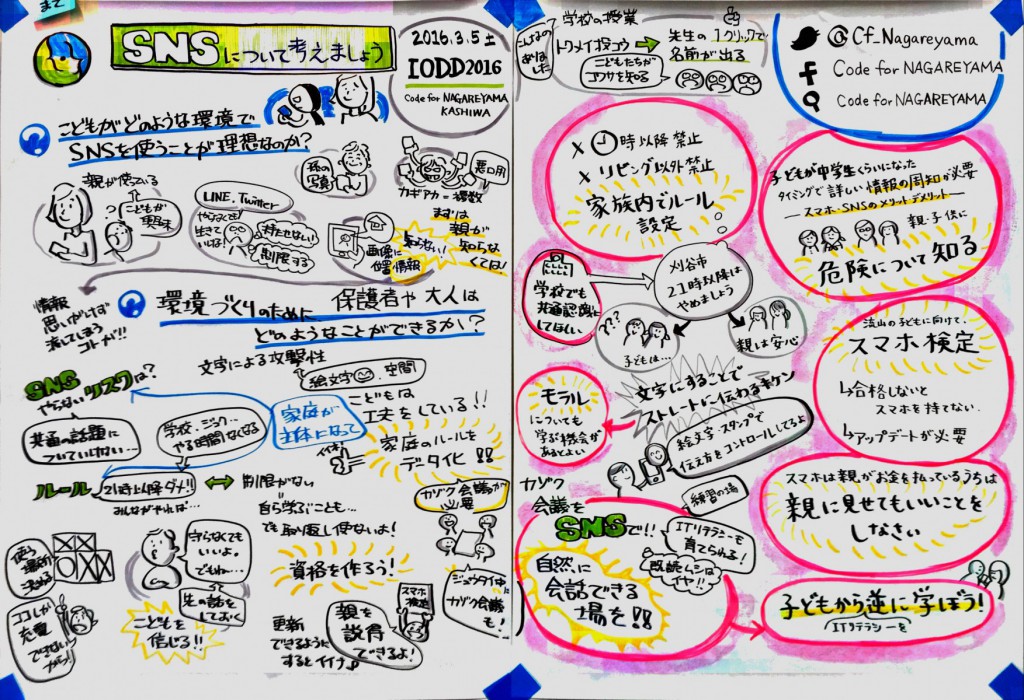 まで
SNSについて考えましょう
2016.3.5 土
IODD2016
Code for NAGAREYAMA
KASHIWA
こどもがどのような環境で
SNSを使うことが理想なのか?
親が使っている
こどもが
興味
LINE, Twitter
やらなくても
生きて
いいな!
持たせない!
制限する
孫の
写真
カギアカ=複数
悪口用
画像に
位置情報
知らない!
まずは
親が
知らなくては!
情報
思いがけず
流してしまう
コトが!!
環境づくりのために 保護者や大人は
どのようなことができるか?
文字による攻撃性
絵文字 空間
SNS
やらない リスクは?
共通の話題に
ついていけない…
学校、ジュク…
やる時間なくなる
家庭が
主体になって
こどもは
工夫をしている!!
イイネ
家庭のルールを
データ化!!
ルール
21時以降ダメ!!
みんながやれば…
削限がない
自ら学ぶことも…
でも取り返し使ないよ!
カゾク会議が
必要
使う
場所
決める
ココしか
充電
できない
守らなくても
いいよ。
でもね…
先の話を
しておく
こどもを
信じる!!
資格を作ろう!
更新
できるように
するとイイナ
スマホ
検定
親を
説得
できるよ!
ジュウタイ中に
カゾク会議
も!
こんなの
ありました
学校の授業
トクメイ投コウ
先生の1クリックで
名前が出る
こどもたちが
コワサを知る
@Cf_Nagareyama
Code for NAGAREYAMA
Code for NAGAREYAMA
× 時以降禁止
× リビング以外禁止
家族内でルール
設定
刈谷市
21時以降は
やめましょう
学校でも
共通認識に
してほしい
???
子どもは…
親は安心
子どもが中学生くらいになった
タイミングで詳しい情報の周知が必要
スマホ・SNSのメリットデメリット
親・子供に
危険について知る
流山の子どもに向けて、
スマホ検定
合格しないと
スマホを持てない
アップデートが必要
モラル
についても
学ぶ機会が
あるとよい
文字にすることで
ストレートに伝わるキケン
絵文字・スタンプで
伝え方をコントロールしてるよ
練習の場
カゾク
会議を
SNSで!!
自然に
会話できる
場を!!
ITリテラシーも
育てられる!
既読ムシは
イヤ!!
スマホは親がお金を払っているうちは
親に見せてもいいことを
しなさい
子どもから逆に学ぼう!
ITリテラシーを